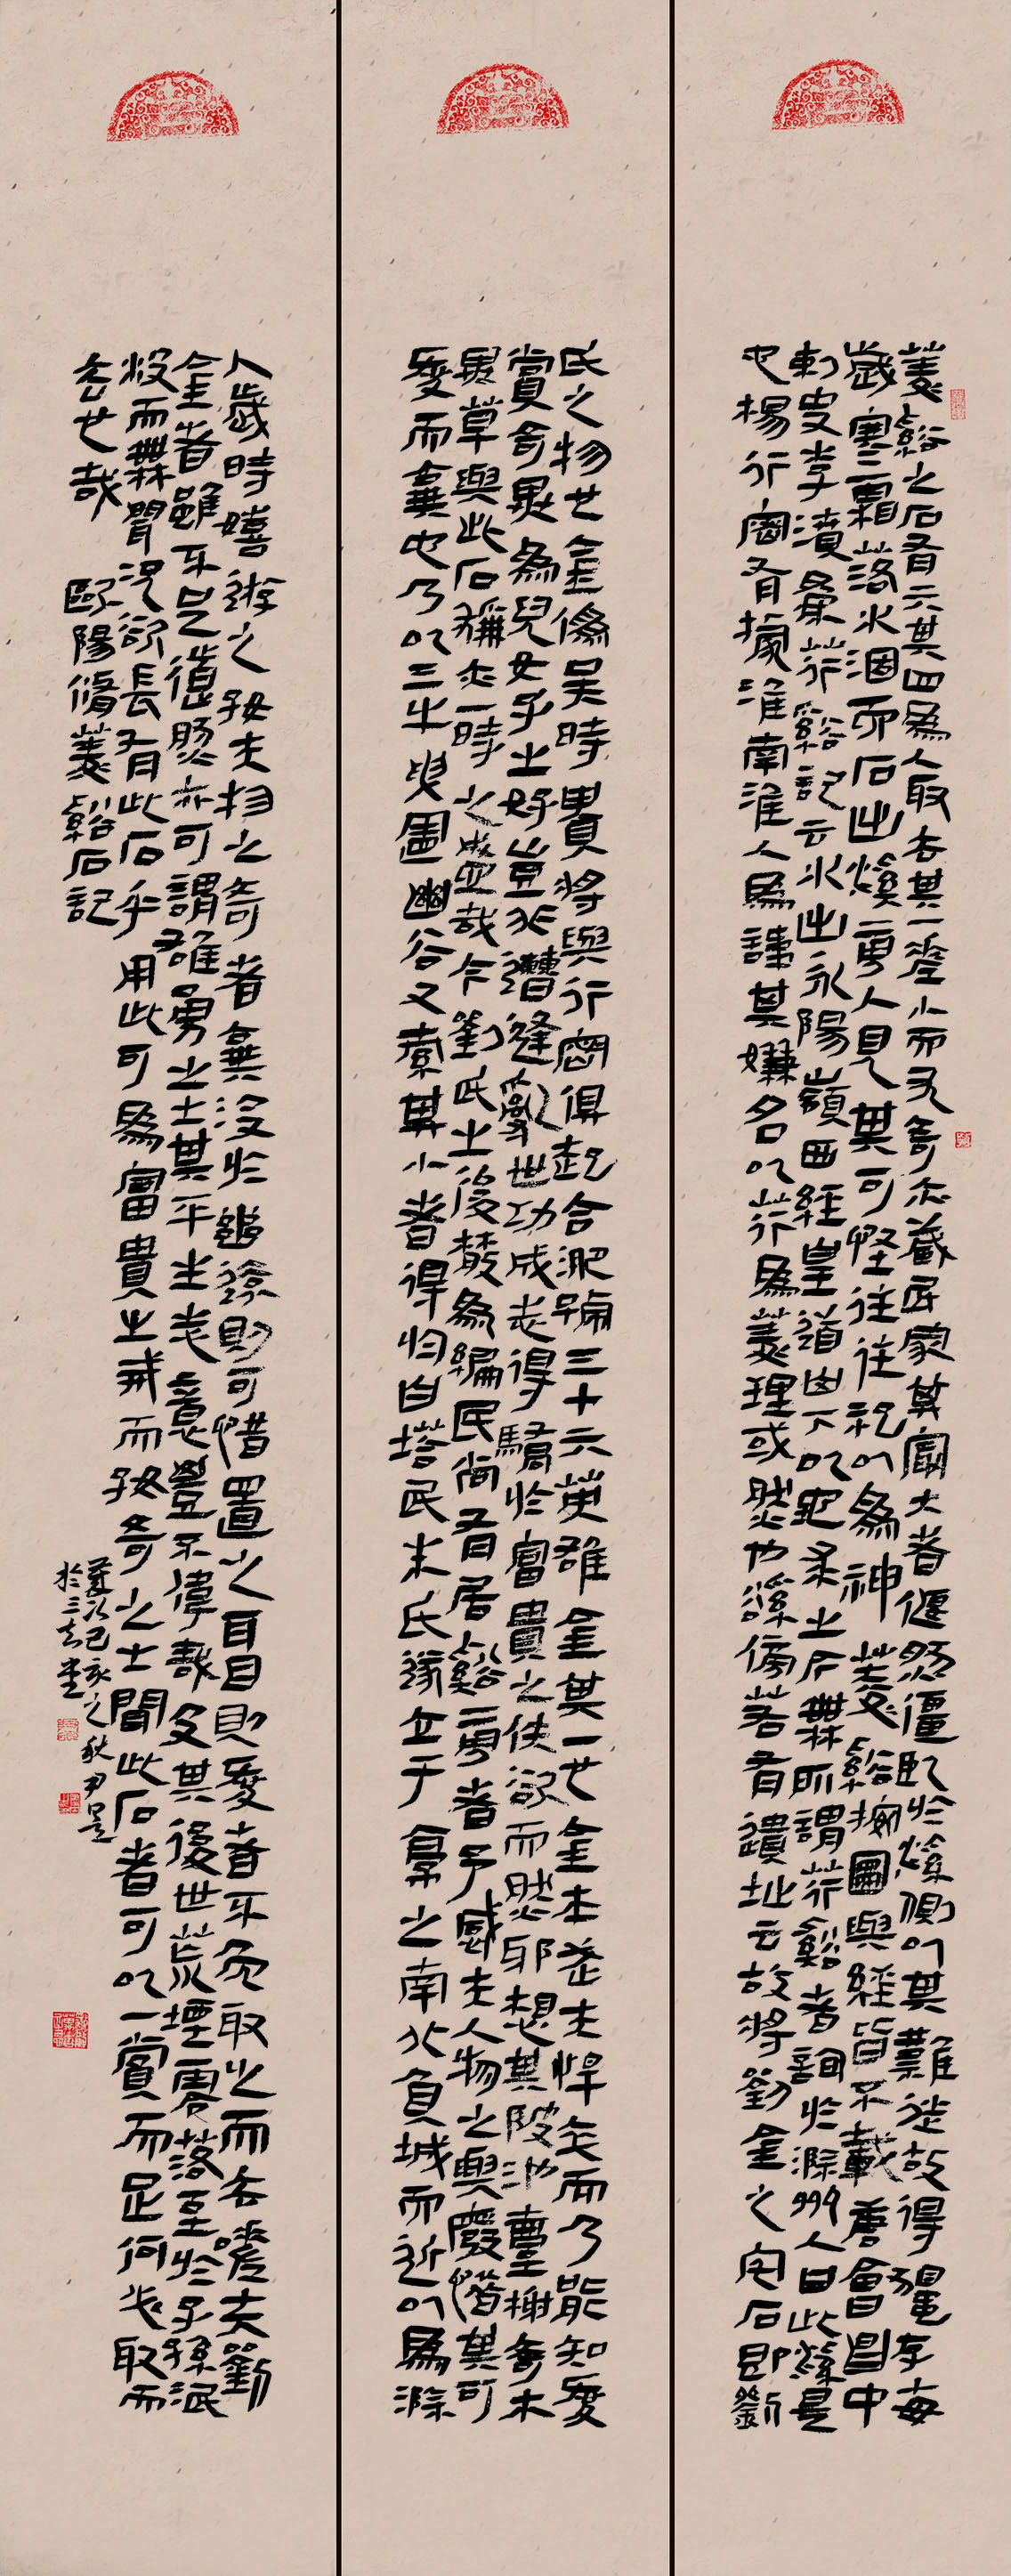 菱谿之石有六其四為人取去其一差小而尤奇亦藏民家其最大者偃然僵臥於溪側以其難徙故得獨存每
歲寒霜落水涸而石出溪旁人見其可怪往往祀以為神菱谿按圖與經皆不載唐會昌中
刺史李濆為荇谿記云水出永陽嶺西經皇道山下以地求之今無所謂荇谿者詢於滁州人曰此溪是
也楊行密有據淮南淮人為諱其嫌名以荇為菱理或然也溪傍若有遺址云故將劉金之宅石即劉
氏之物也金偽吳時貴將與行密俱起合淝號三十六英雄金其一也金本武夫悍卒而乃能知愛
賞奇異為兒女子之好豈非遭逢亂世功成志得驕於富貴之佚欲而然邪想其陂池臺榭奇木
異草與此石稱亦一時之盛哉今劉氏之後散為編民尚有居谿旁者予感夫人物之興廢惜其可
愛而棄也乃以三牛曳置幽谷又索其小者得於白塔民朱氏遂立于亭之南北負城而近以為滁
人歲時嬉遊之好夫物之奇者棄沒於幽遠則可惜置之耳目則愛者不免取之而去嗟夫劉
金者雖不足道然亦可謂雄勇之士其平生志意豈不偉哉及其後世荒堙零落至於子孫泯
沒而無聞況欲長有此石乎用此可為富貴之戒而好奇之士聞此石者可以一賞而足何必取而
去也哉 歐陽脩菱谿石記
歲次己亥之秋